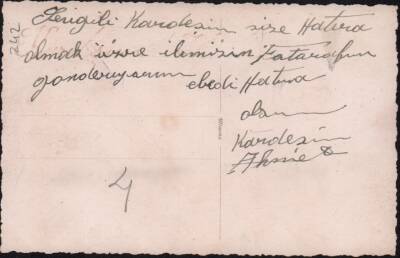 Sevgili Kardeşim size Hatıra
olmak üzre ilimizin Fatarafın
gonderiyorum ebedi Hatıra
olsun
Kardeşin
Ahmet
242
4